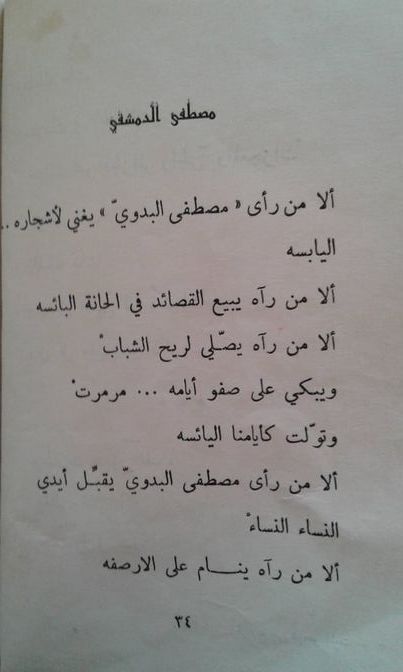 مصطفى الدمشقي
ألا من رأى « مصطفى البدويّ » يغني لأشجاره ..
اليابسه
ألا من رآه يبيع القصائد في الحانة البائسه
ألا من رآه يصلّي لريح الشبابْ
ويبكي على صفو أيامه ... مرمرتْ
وتولّت كأيامنا اليائسه
ألا من رأى مصطفى البدويّ يقبّل أيدي
النساء النساءْ
ألا من رآه ينـــام على الارصفه
٣٤